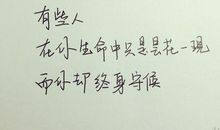 有些人
在你生命中只是昙花一现
而你却终身守候